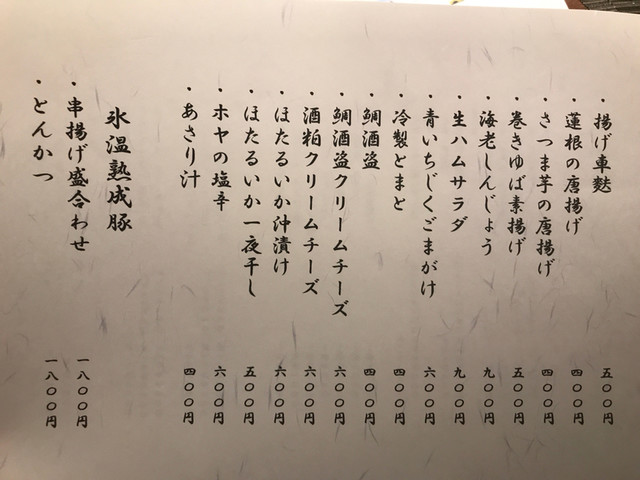 ・揚げ車麩 五〇〇円
・蓮根の唐揚げ 四〇〇円
・さつま芋の唐揚げ 四〇〇円
・巻きゆば素揚げ 五〇〇円
・海老しんじょう 九〇〇円
・生ハムサラダ 九〇〇円
・青いちじくごまがけ 六〇〇円
・冷製とまと 四〇〇円
・鯛酒盗 四〇〇円
・鯛酒盗クリームチーズ 六〇〇円
・酒粕クリームチーズ 六〇〇円
・ほたるいか沖漬け 六〇〇円
・ほたるいか一夜干し 五〇〇円
・ホヤの塩辛 六〇〇円
・あさり汁 四〇〇円
氷温熟成豚
・串揚げ盛合わせ 一八〇〇円
・とんかつ 一八〇〇円